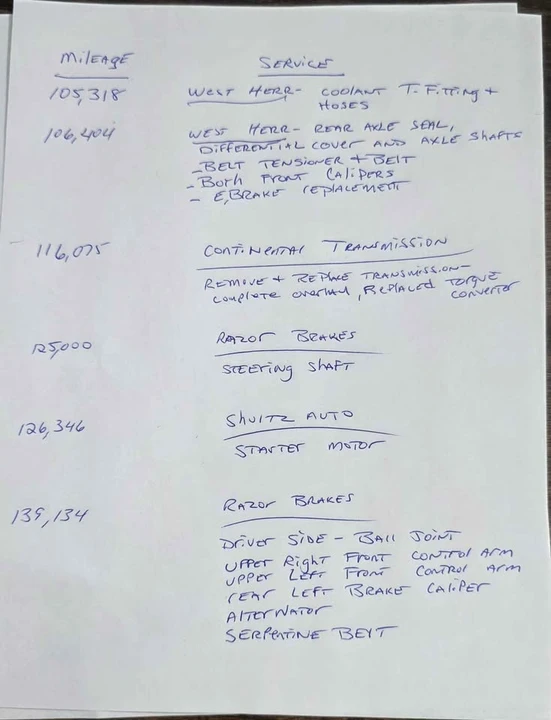 MILEAGE SERVICE
105,318 WEST HERR- COOLANT T. FITTING +
HOSES
106,404 WEST HERR- REAR AXLE SEAL,
DIFFERENTIAL COVER AND AXLE SHAFTS
-BELT TENSIONER + BELT
-BOTH FRONT CALIPERS
- E,BRAKE REPLACEMENT
116,075 CONTINENTAL TRANSMISSION
REMOVE + REPLACE TRANSMISSION-
COMPLETE OVERHAUL, REPLACED TORQUE
CONVERTOR
125,000 RAZOR BRAKES
STEERING SHAFT
126,346 SHULTZ AUTO
STARTER MOTOR
139,134 RAZOR BRAKES
DRIVER SIDE - BALL JOINT
UPPER RIGHT FRONT CONTROL ARM
UPPER LEFT FRONT CONTROL ARM
REAR LEFT BRAKE CALIPER
ALTERNATOR
SERPENTINE BELT